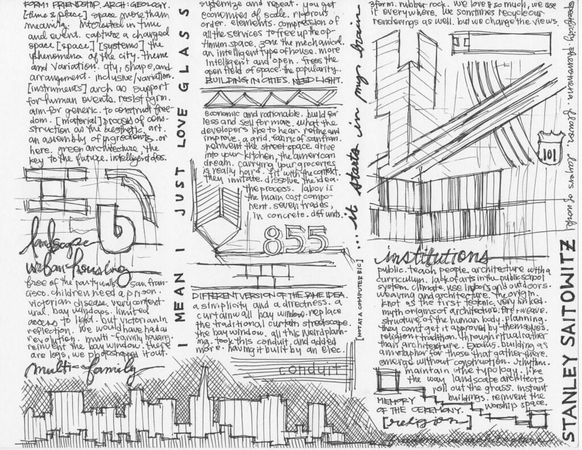 FORM. FRIENDSHIP. ARCH. GEOLOGY.
[time & space] space gives them
meaning. interested in time
and event. capture a charged
space [space] [systems] the
phenomena of the city. theme
and variation. qty, shape, and
arrangement. inclusive/variation.
[instruments] arch as support
for human events. resist form.
aim for generic. to construct free-
dom. [material] process of con-
struction as the aesthetic. art.
an assembly of ingredients.
here. green architecture. the
key to the future. intelligent
landscape
urban housing
free of the party wall san fran-
cisco. children need a prison.
victorian disease.
ural bay windows. limited
access to light. but victorian in
reflection. we would have had a
revolution. multi-family haven.
reinvent the bay window. they
are logs, we photograph it out.
multi-family
I MEAN I JUST LOVE GLASS
customize and repeat. you get
economies of scale. rigorous
order. elements. compression of
all the services to free up the op-
timum space. zone the mechanical.
an intelligent type of house. more
intelligent and open. frees the
open field of space. the popularity.
BUILDING IN CITIES. NEED LIGHT.
economic and rationable. build for
less and sell for more. what the
developers like to hear. refine and
improve. a grid. fabric of san fran.
reinvent the street-space. drive
into your kitchen, the american
dream. carrying your groceries
is really hard. fit with the context.
they imitate. dissolve the idea.
the process. labor is
the main cost compo-
nent. seven trades,
in concrete.
855
DIFFERENT VERSION OF THE SAME IDEA.
a simplicity and a directness. a
curtain all bay window. replace
the traditional curtain streetscape.
the bay window, all the weird bank-
ing. took this conduit, and added
more. having it built by an elec.
conduit
...it starts in my brain
[NOT A COMPUTER BIC]
form. rubber. rock. we love it so much, we use
it everywhere. we sometimes recycle our
renderings as well. but we change the views.
101
institutions
public. teach people. architecture with a
curriculum. lack of arts in the public school
system. climate. use indoors and outdoors.
weaving and architecture. the origin.
not of the first texture, very naked.
myth origins of architecture. fire. weave.
structure of the human body. planning.
they cant get it approved by themselves.
religion + tradition. through ritual rather
than architecture. exodus. building as
a metaphor for those that gather there.
emerge without construction. rhythm.
maintain the typology. like
the way landscape architects
roll out the grass. instant
buildings. reinvent the
worship space.
MEMORY
OF THE CEREMONY.
[religion]
STANLEY SAITOWITZ